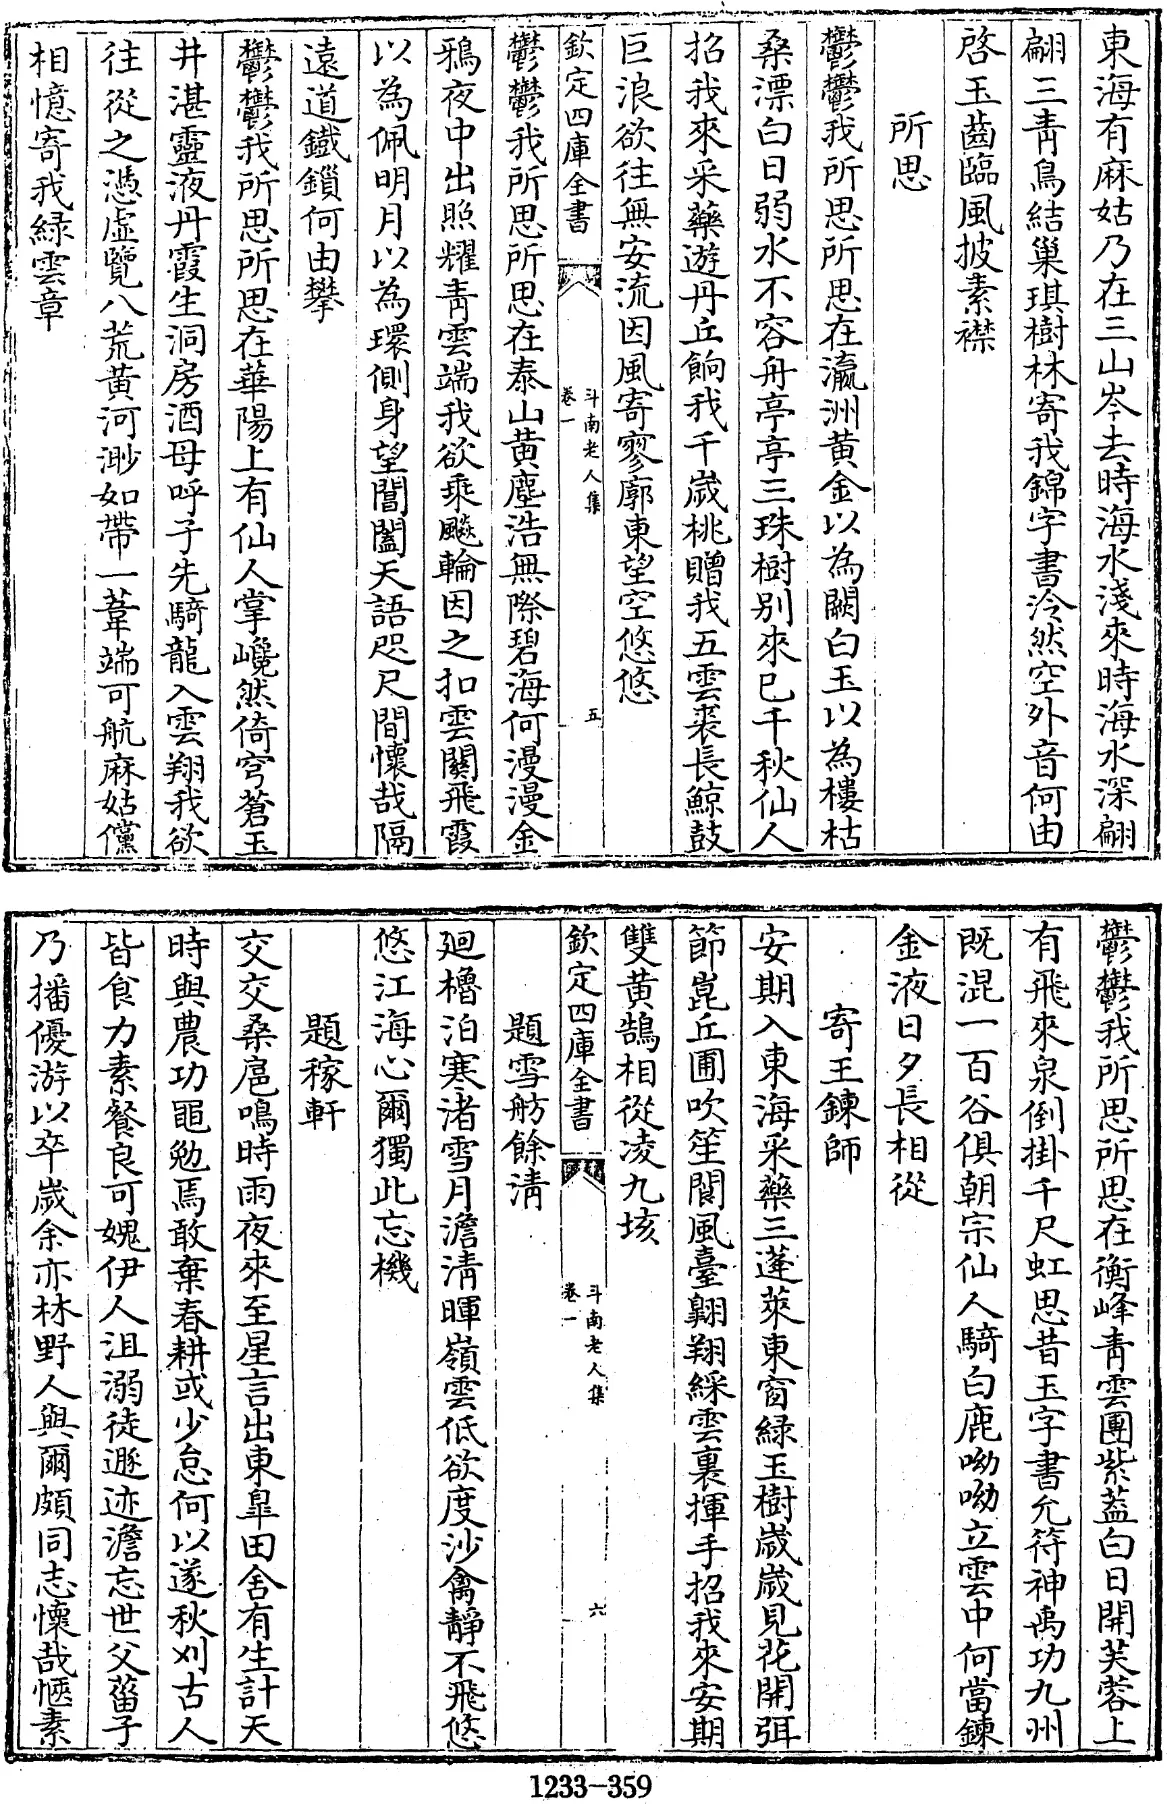 東海有麻姑乃在三山岑去時海水淺來時海水深翩
翩三青鳥結巢琪樹林寄我錦字書泠然空外音何由
啓玉齒臨風披素襟
所思
鬱鬱我所思所思在瀛洲黄金以為闕白玉以為樓枯
桑漂白日弱水不容舟亭亭三珠樹别來已千秋仙人
招我來采藥遊丹丘餉我千歳桃贈我五雲裘長鯨鼓
巨浪欲往無安流因風寄寥廓東望空悠悠
欽定四庫全書
斗南老人集
卷一
五
鬱鬱我所思所思在泰山黄塵浩無際碧海何漫漫金
鴉夜中出照耀青雲端我欲乘飈輪因之扣雲關飛霞
以為佩明月以為環側身望閶闔天語咫尺間懷哉隔
遠道鐵鎖何由攀
鬱鬱我所思所思在華陽上有仙人掌巉然倚穹蒼玉
井湛靈液丹霞生洞房酒母呼子先騎龍入雲翔我欲
往從之憑虛覽八荒黄河渺如帶一葦端可航麻姑儻
相憶寄我緑雲章
鬱鬱我所思所思在衡峰青雲團紫蓋白日開芙蓉上
有飛來泉倒掛千尺虹思昔玉字書允符神禹功九州
既混一百谷俱朝宗仙人騎白鹿呦呦立雲中何當鍊
金液日夕長相從
寄王鍊師
安期入東海采藥三蓬萊東窗緑玉樹歳歳見花開弭
節崑丘圃吹笙閬風臺翺翔綵雲裏揮手招我來安期
雙黄鵠相從凌九垓
欽定四庫全書
斗南老人集
卷一
六
題雪舫餘清
廻櫓泊寒渚雪月澹清暉嶺雲低欲度沙禽靜不飛悠
悠江海心爾獨此忘機
題稼軒
交交桑扈鳴時雨夜來至星言出東臯田舍有生計天
時與農功黽勉焉敢棄春耕或少怠何以遂秋刈古人
皆食力素餐良可媿伊人沮溺徒遯迹澹忘世父菑子
乃播優游以卒歳余亦林野人與爾頗同志懷哉愜素
1233-359